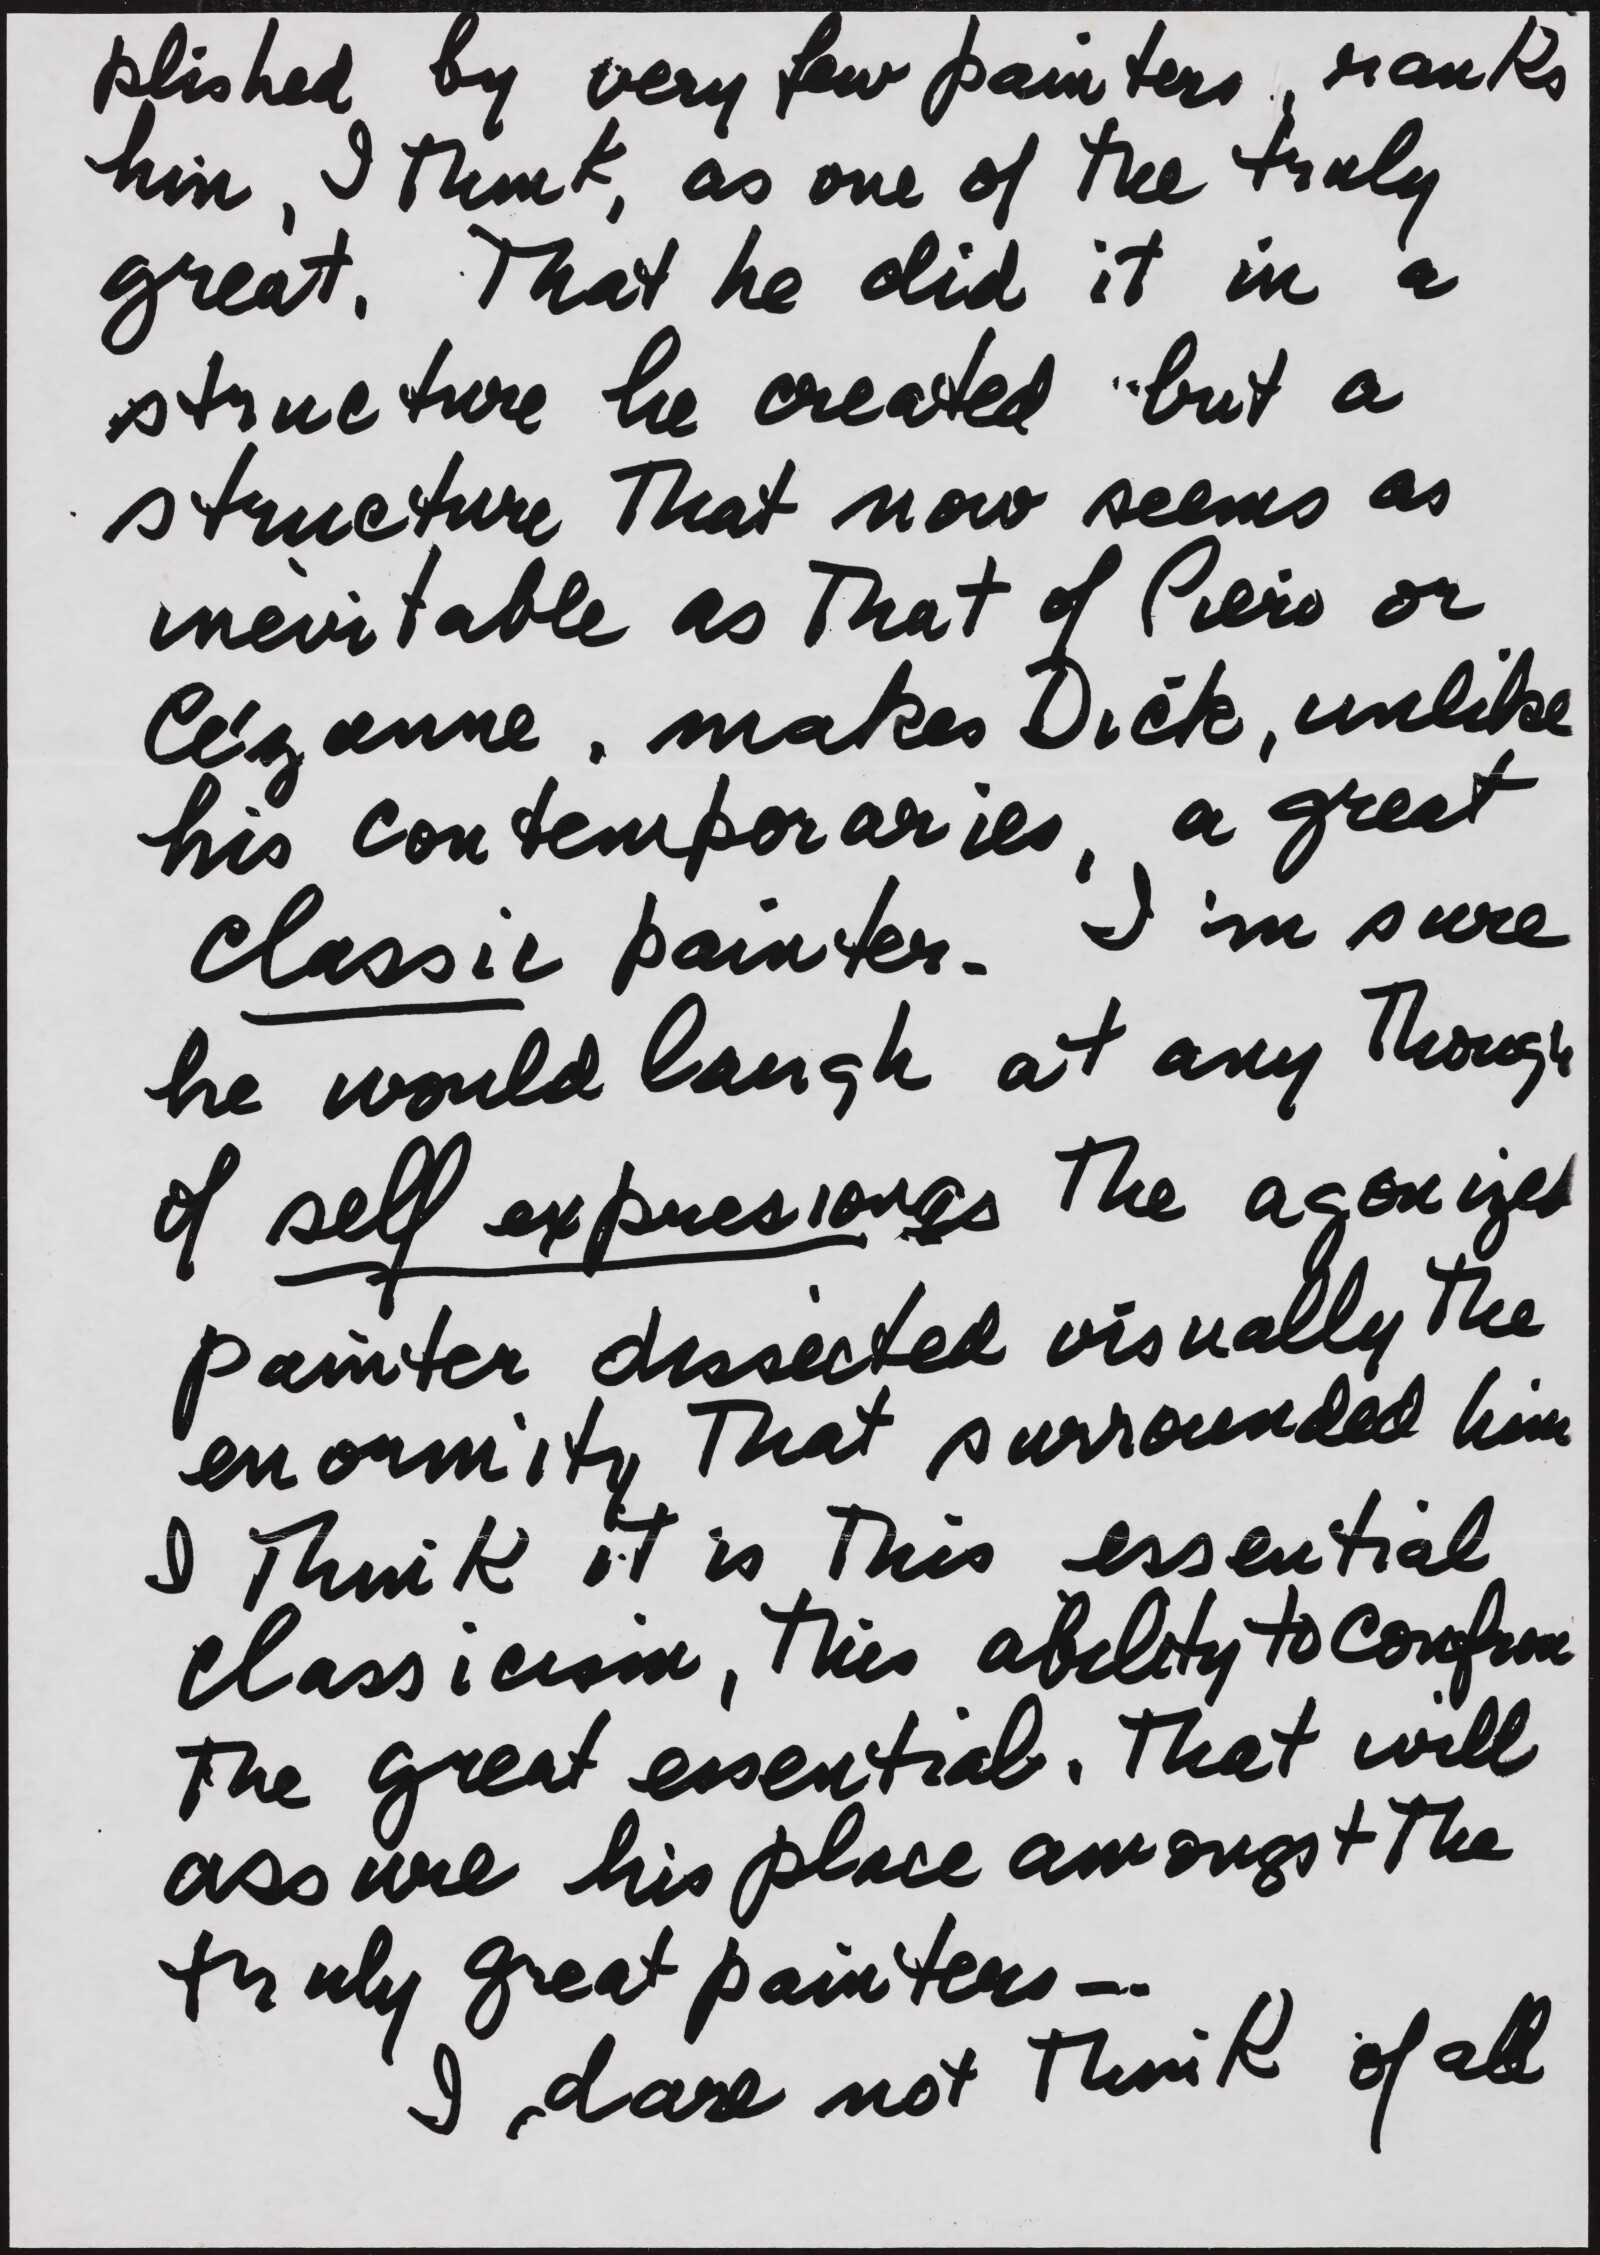 plished by very few painters, ranks
him, I think, as one of the truly
great. That he did it in a
structure he created but a
structure that now seems as
inevitable as that of Piero or
Cézanne. makes Dick, unlike
his contemporaries, a great
classic painter. I'm sure
he would laugh at any though
of self expression as the agonized
painter dissected visually the
enormity that surrounded him
I think it is this essential
classicism, this ability to confron
the great essential. That will
assure his place amongst the
truly great painters—
I dare not think of all